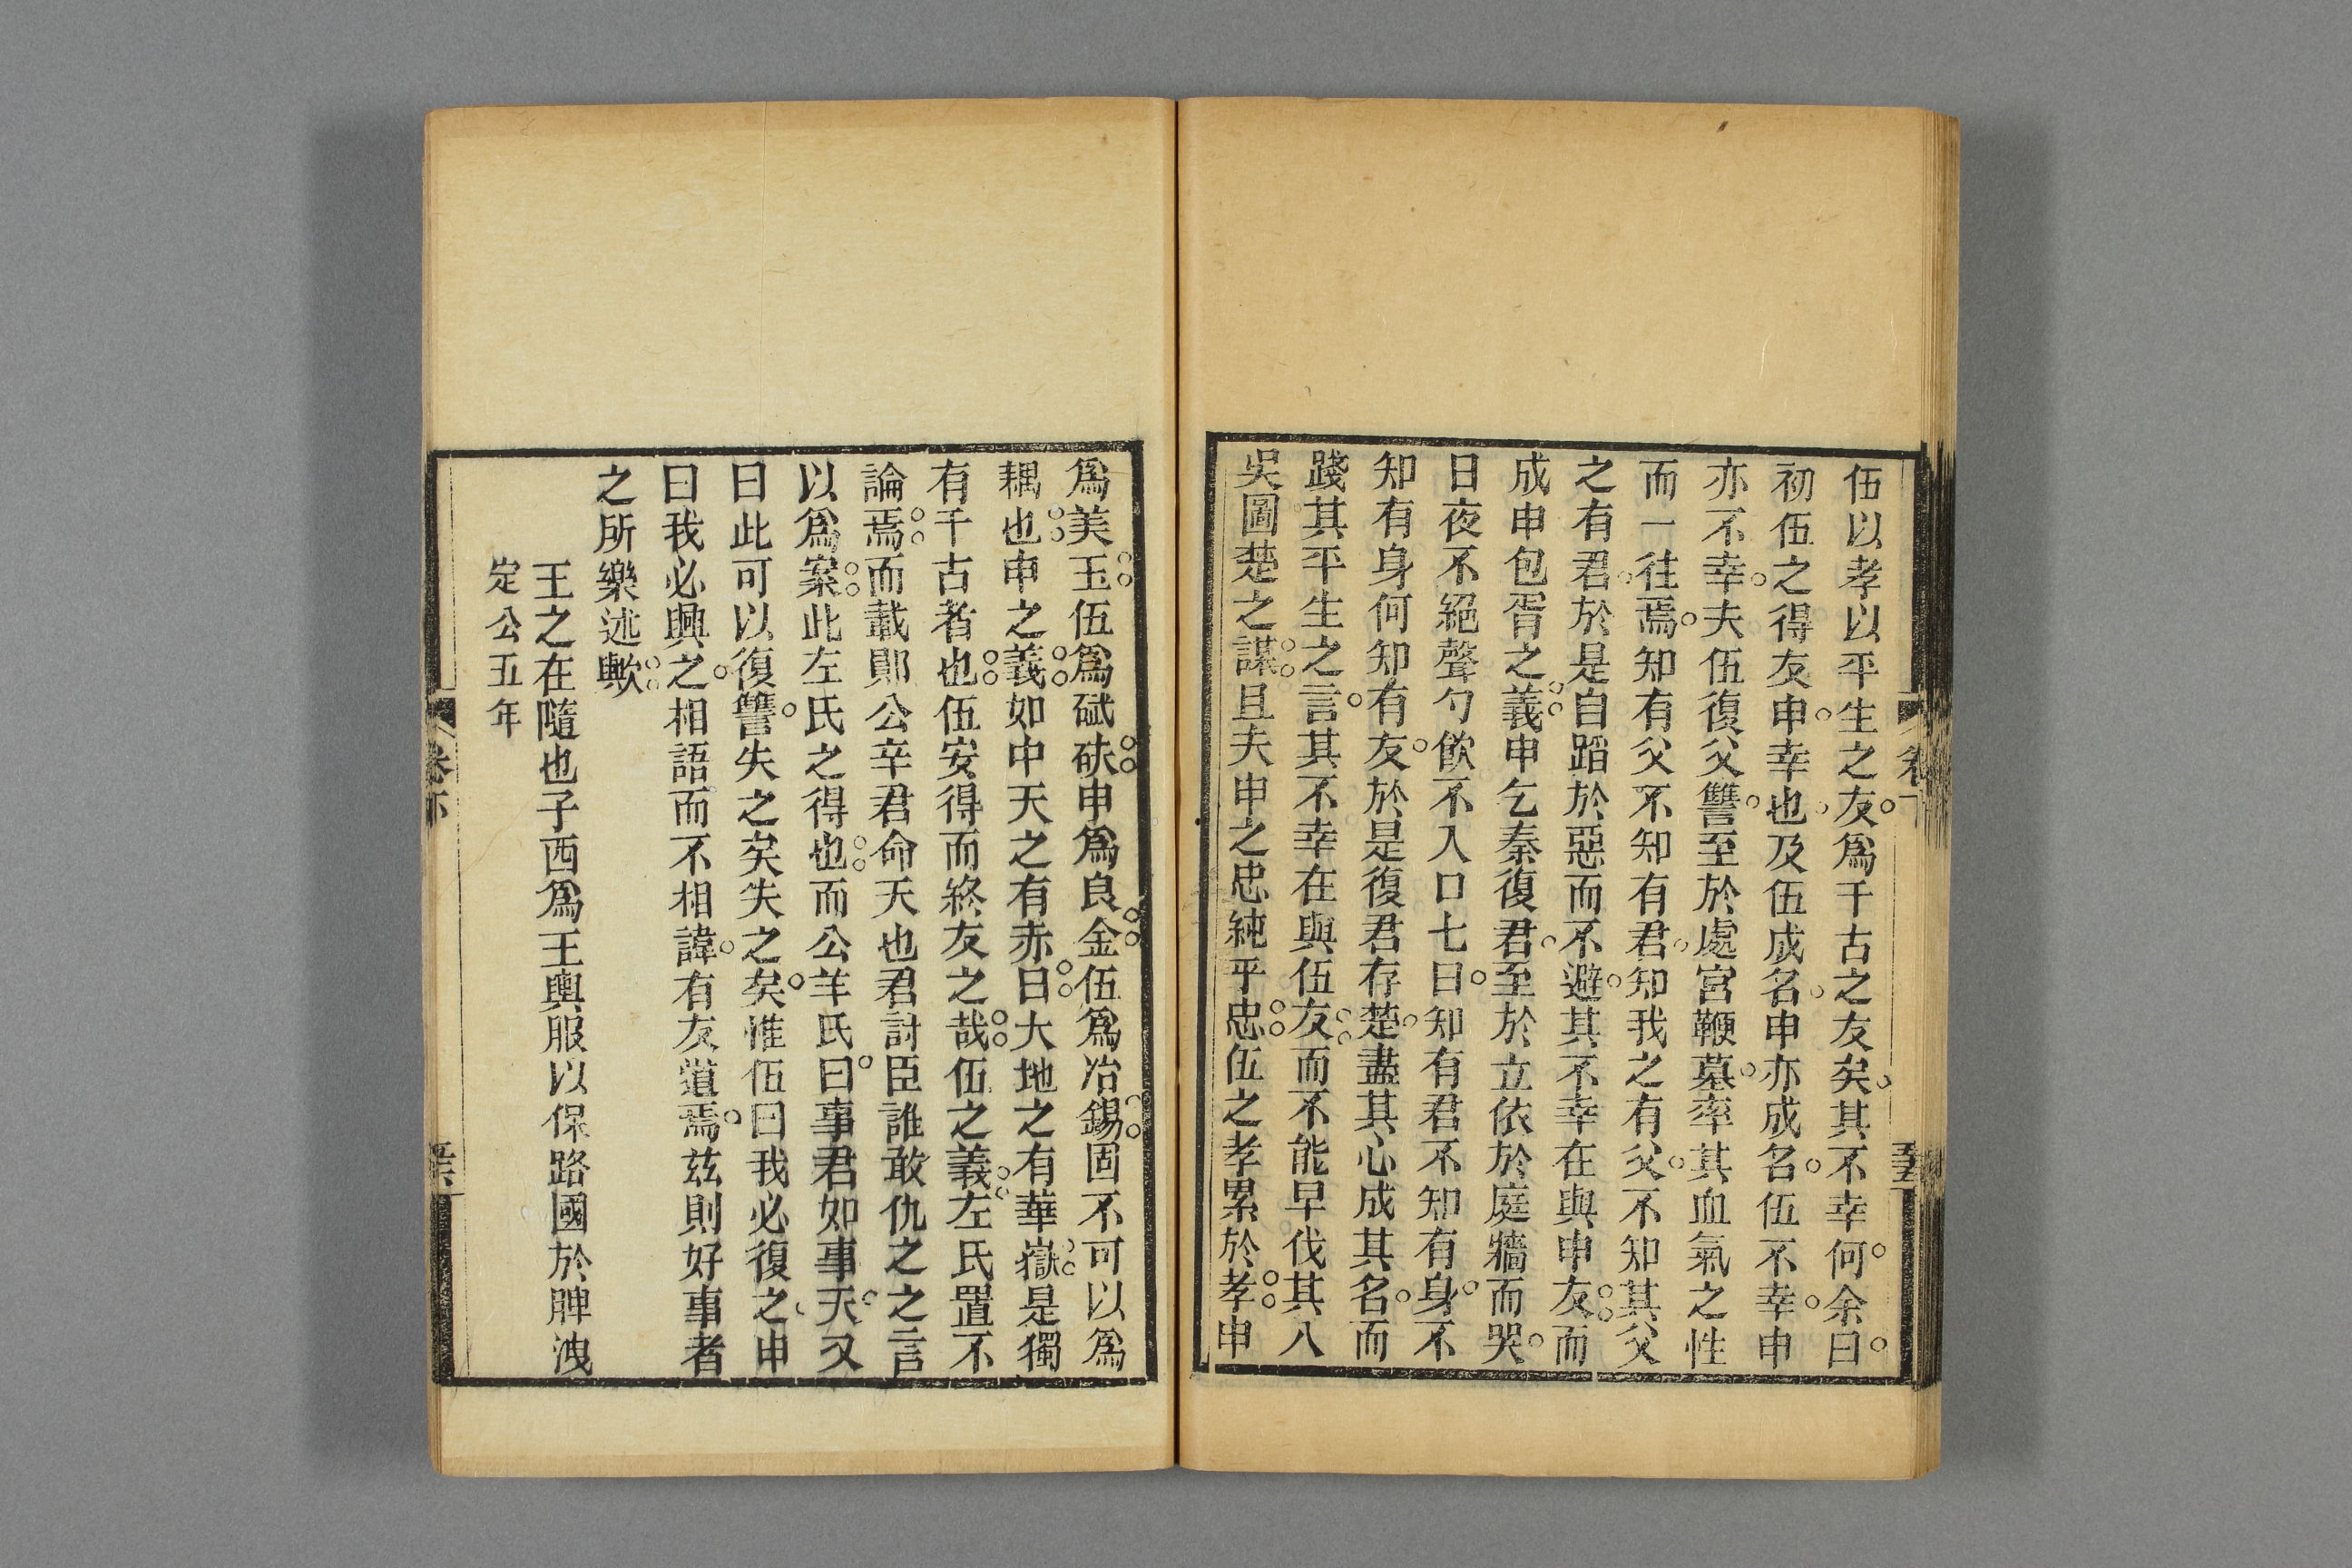 伍以孝以平生之友爲千古之友矣其不幸何余曰
初伍之得友申幸也及伍成名申亦成名伍不幸申
亦不幸夫伍復父讐至於處宮鞭墓率其血氣之性
而一往焉知有父不知有君知我之有父不知其父
之有君於是自蹈於惡而不避其不幸在與申友而
成申包胥之義申乞秦復君至於立依於庭牆而哭
日夜不絕聲勺飲不入口七日知有君不知有身不
知有身何知有友於是復君存楚盡其心成其名而
踐其平生之言其不幸在與伍友而不能早伐其入
吳圖楚之謀且夫申之忠純乎忠伍之孝累於孝申
爲美玉伍爲碔砆申爲良金伍爲冶錫固不可以爲
耦也申之義如中天之有赤日大地之有華嶽是獨
有千古者也伍安得而終友之哉伍之義左氏置不
論焉而載鄖公辛君命天也君討臣誰敢仇之之言
以爲案此左氏之得也而公羊氏曰事君如事天又
曰此可以復讐失之矣失之矣惟伍曰我必復之申
曰我必興之相語而不相諱有友道焉茲則好事者
之所樂述歟
王之在隨也子西爲王輿服以保路國於脾洩
定公五年
卷下